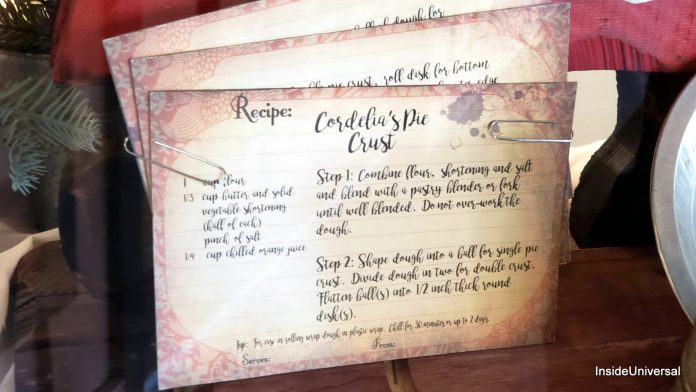 dough for
pie crust, roll disk for bottom
edge
Recipe:
Cordelia's Pie
Crust
1 cup flour
1/3 cup butter and solid
vegetable shortening
(half of each)
pinch of salt
1/4 cup chilled orange juice
Step 1: Combine flour, shortening and salt
and blend with a pastry blender or fork
until well blended. Do not over-work the
dough.
Step 2: Shape dough into a ball for single pie
crust. Divide dough in two for double crust.
Flatten ball(s) into 1/2 inch thick round
disk(s).
Tip: For ease in rolling wrap dough in plastic wrap. Chill for 30 minutes or up to 2 days.
Serves:
From:
InsideUniversal